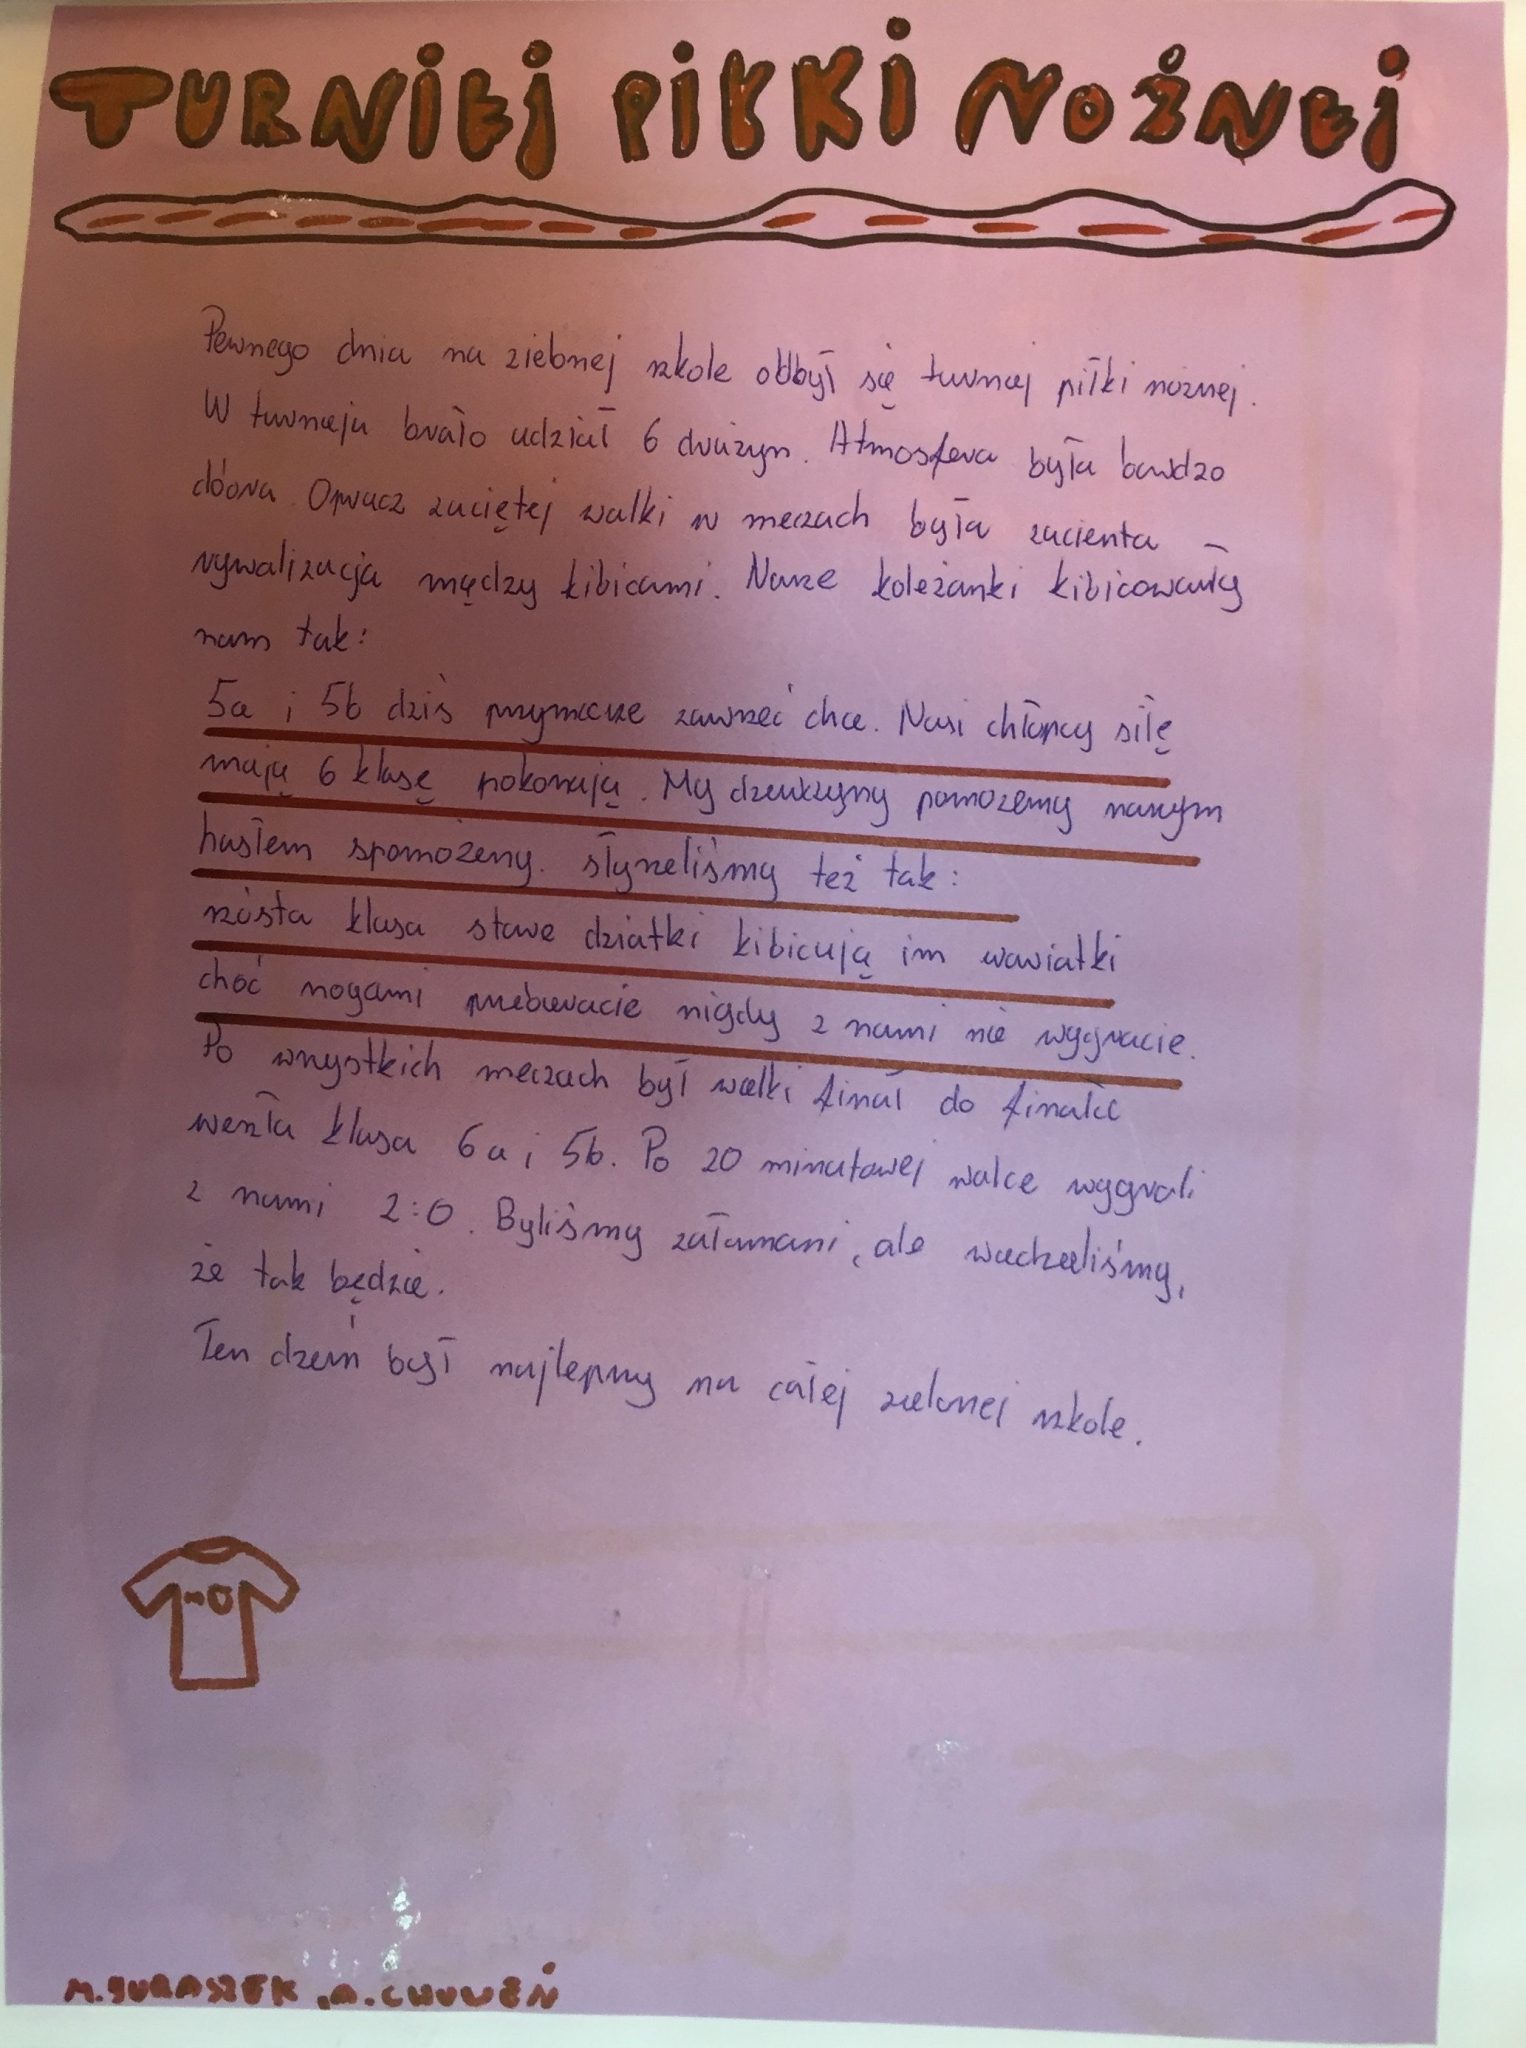 TURNIEJ PIŁKI NOŻNEJ
Pewnego dnia na zielonej szkole odbył się turniej piłki nożnej.
W turnieju brało udział 6 drużyn. Atmosfera była bardzo
dobra. Oprucz zaciętej walki w meczach była zacienta
rywalizacja między kibicami. Nasze koleżanki kibicowały
nam tak:
5a i 5b dziś przymierze zawrzeć chce. Nasi chłopcy siłę
mają 6 klasę pokonają. My dziewczyny pomożemy naszym
hasłem spomożeny. słyszeliśmy też tak:
szósta klasa stare dziatki kibicują im wariatki
choć nogami przebieracie nigdy z nami nie wygracie.
Po wszystkich meczach był wielki finał do finału
weszła klasa 6a i 5b. Po 20 minutowej walce wygrali
z nami 2:0. Byliśmy załamani, ale wiedzieliśmy,
że tak będzie.
Ten dzień był najlepszy na całej zielonej szkole.
M.JURASZEK, A.